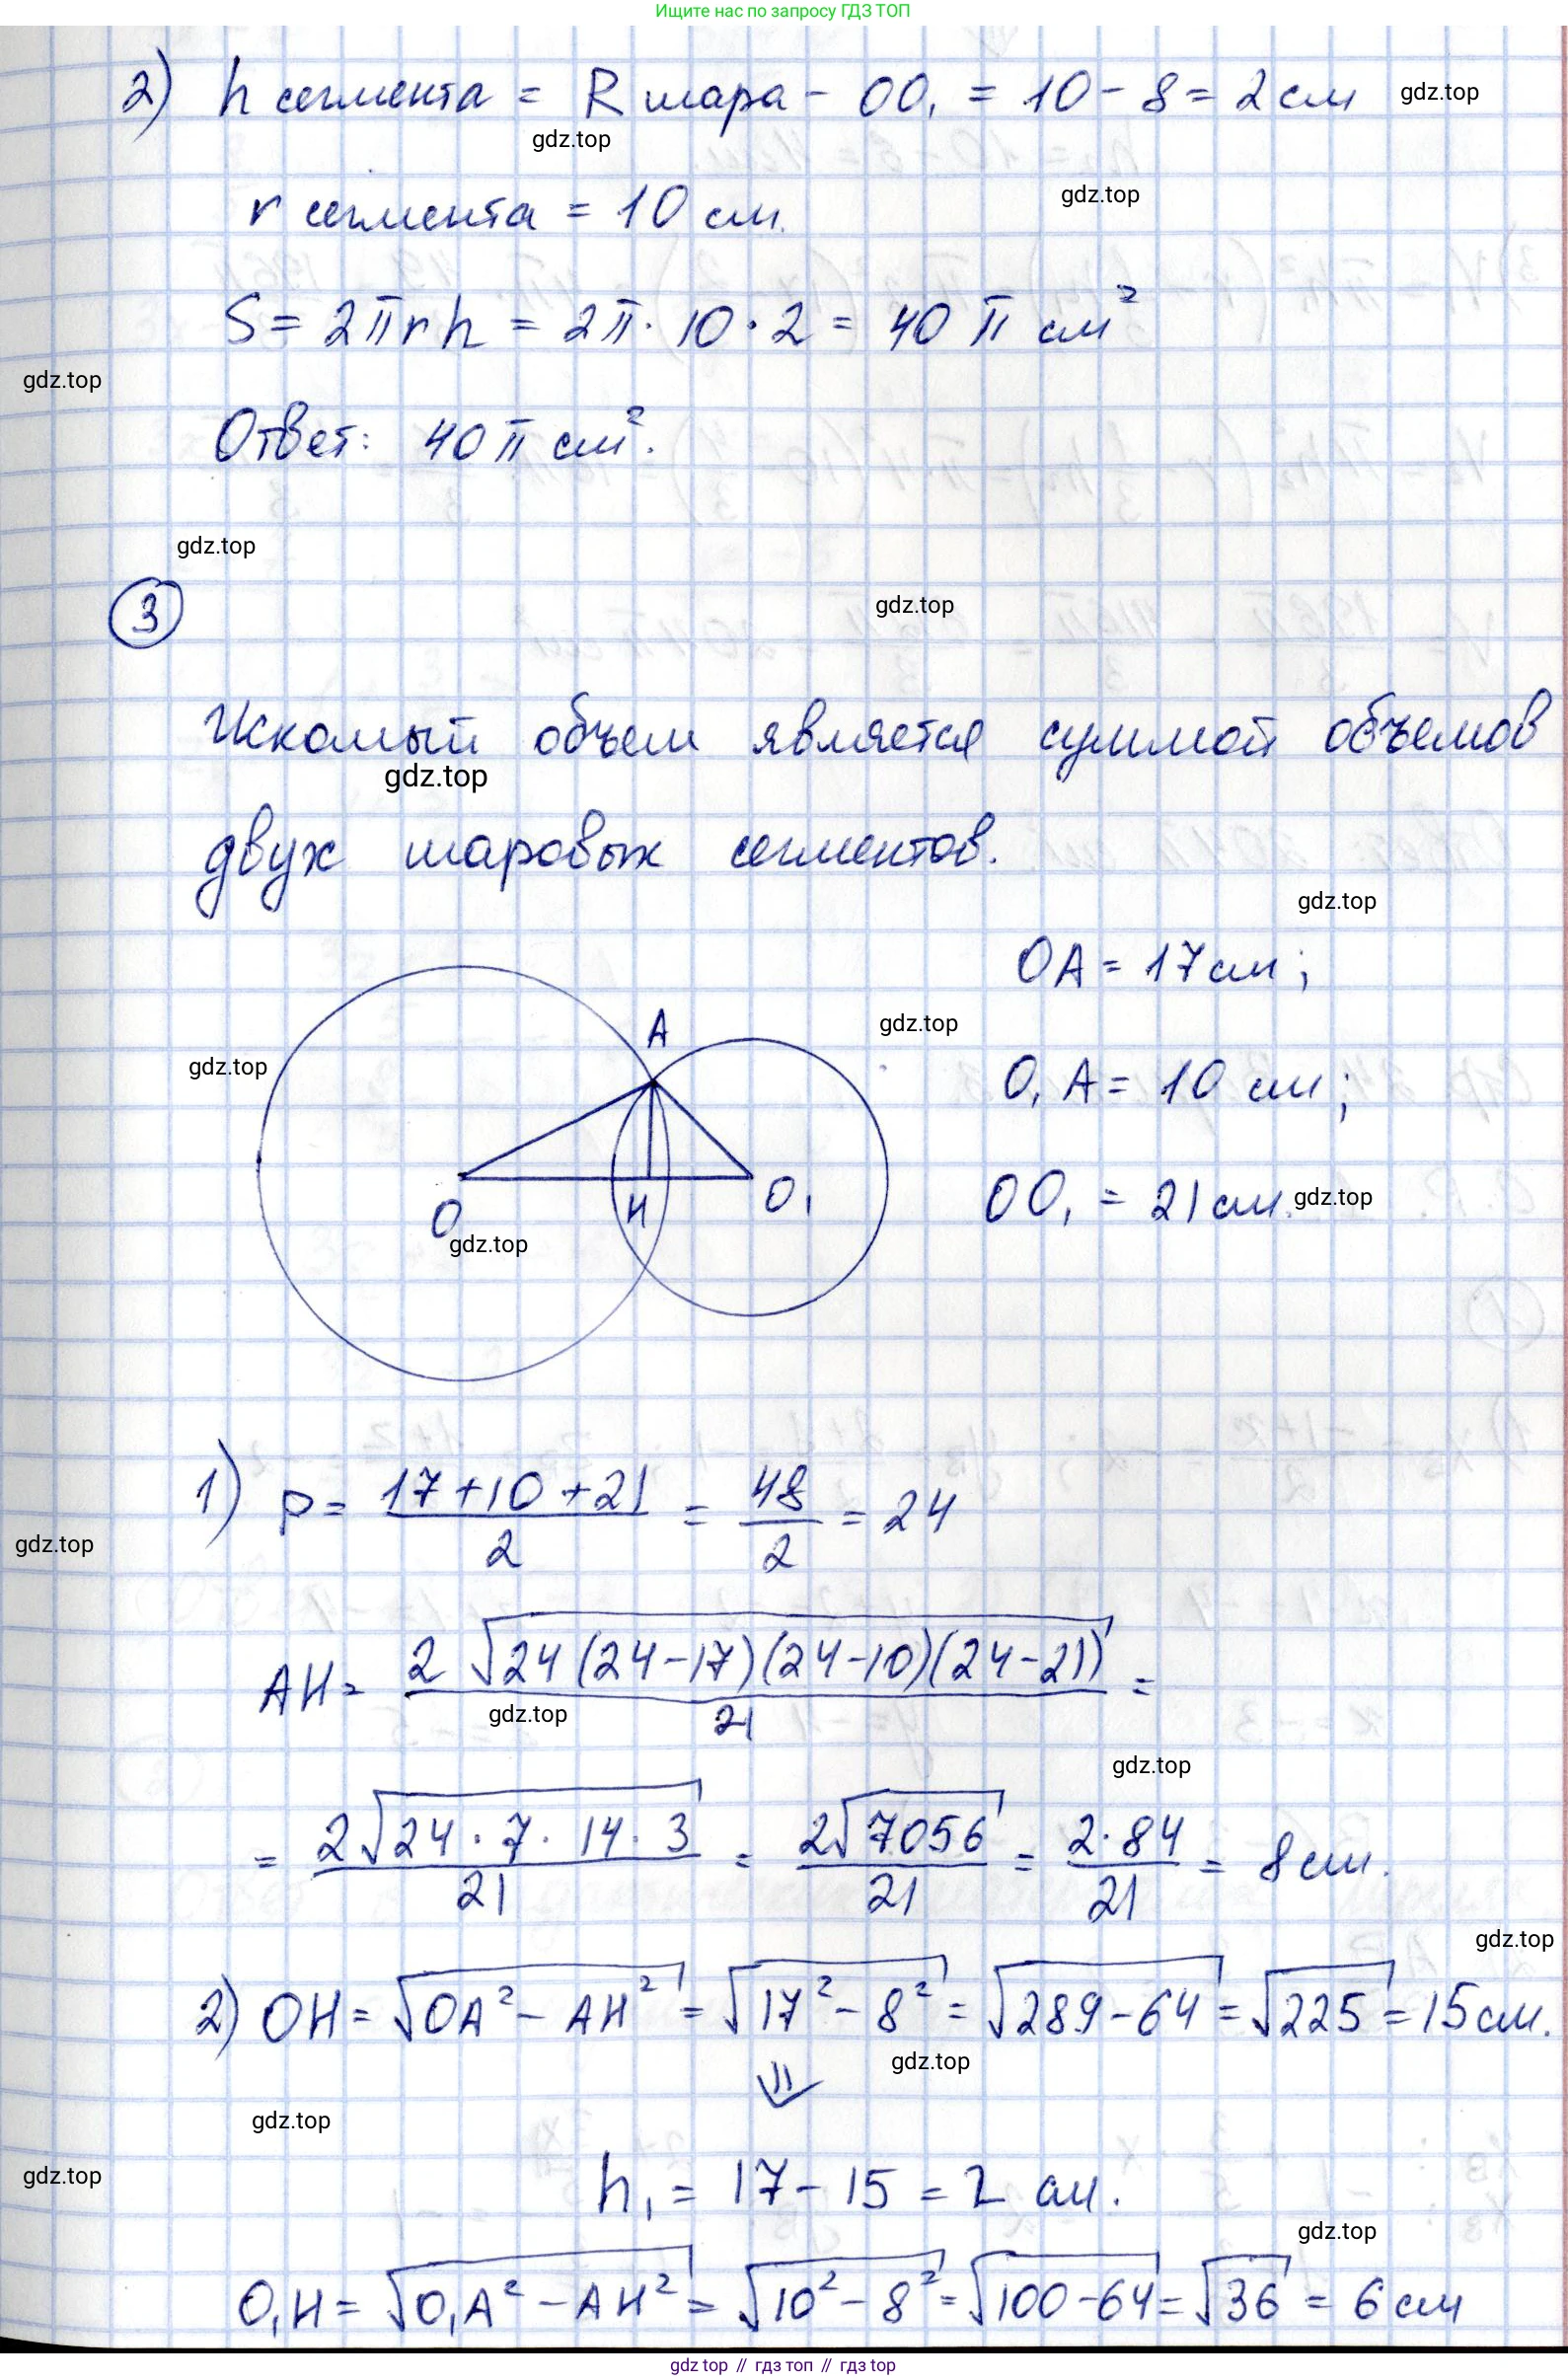 Ищите нас по запросу ГДЗ ТОП
2) h сегмента = R шара - OO₁ = 10 - 8 = 2 см
gdz.top
gdz.top
r сегмента = 10 см.
gdz.top
S = 2πrh = 2π · 10 · 2 = 40π см²
gdz.top
Ответ: 40π см².
gdz.top
3
gdz.top
Искомый объем является суммой объемов
gdz.top
двух шаровых сегментов.
gdz.top
OA = 17 см;
A
gdz.top
gdz.top
O₁A = 10 см;
O
H
O₁
OO₁ = 21 см.
gdz.top
gdz.top
1) p = (17+10+21)/2 = 48/2 = 24
gdz.top
AH = 2√(24(24-17)(24-10)(24-21))/21 =
gdz.top
gdz.top
= 2√(24·7·14·3)/21 = 2√7056/21 = 2·84/21 = 8 см.
gdz.top
2) OH = √(OA² - AH²) = √(17² - 8²) = √(289-64) = √225 = 15 см.
gdz.top
⇓
gdz.top
gdz.top
h₁ = 17 - 15 = 2 см.
gdz.top
O₁H = √(O₁A² - AH²) = √(10² - 8²) = √(100-64) = √36 = 6 см
gdz.top // гдз топ // гдз top